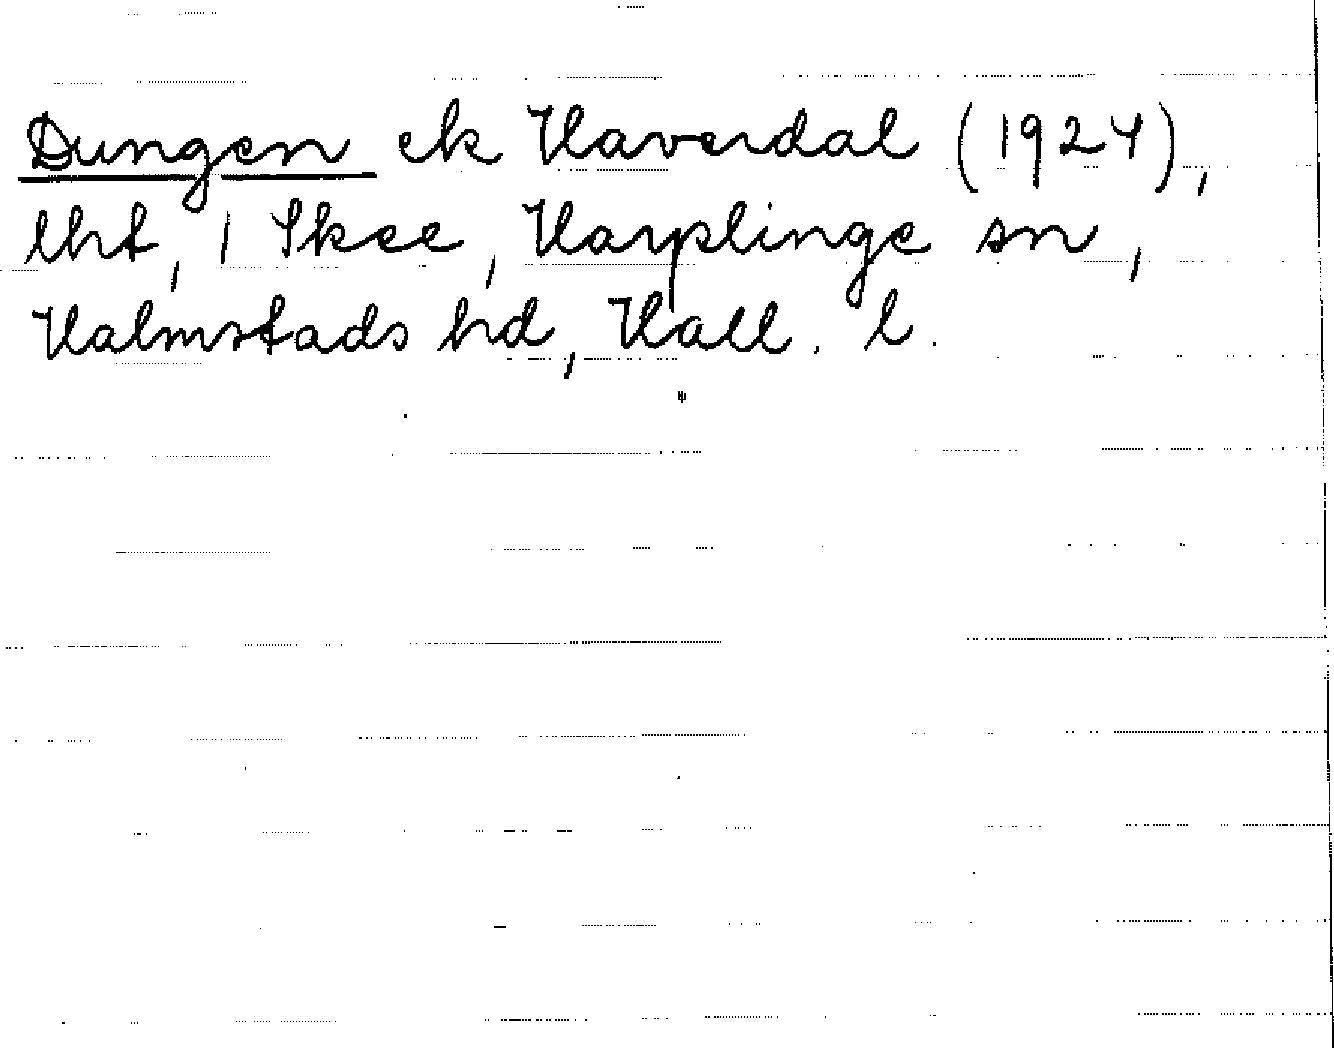 Dungen ek Haverdal (1924),
lht, 1 Skee, Harplinge sn,
Halmstads hd, Hall. l.